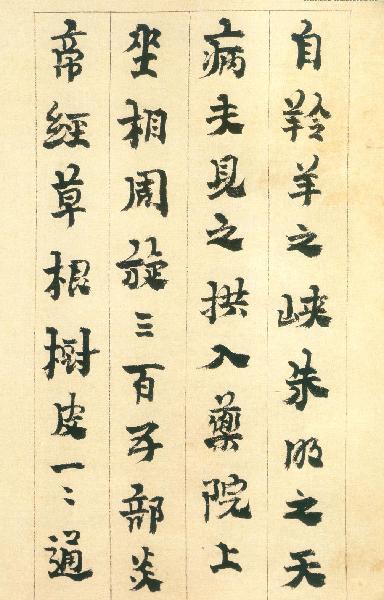 自羚羊之峽朱明之天
病夫見之拱入藥院上
坐相周旋三百子部炎
帝經草根樹皮一〻通